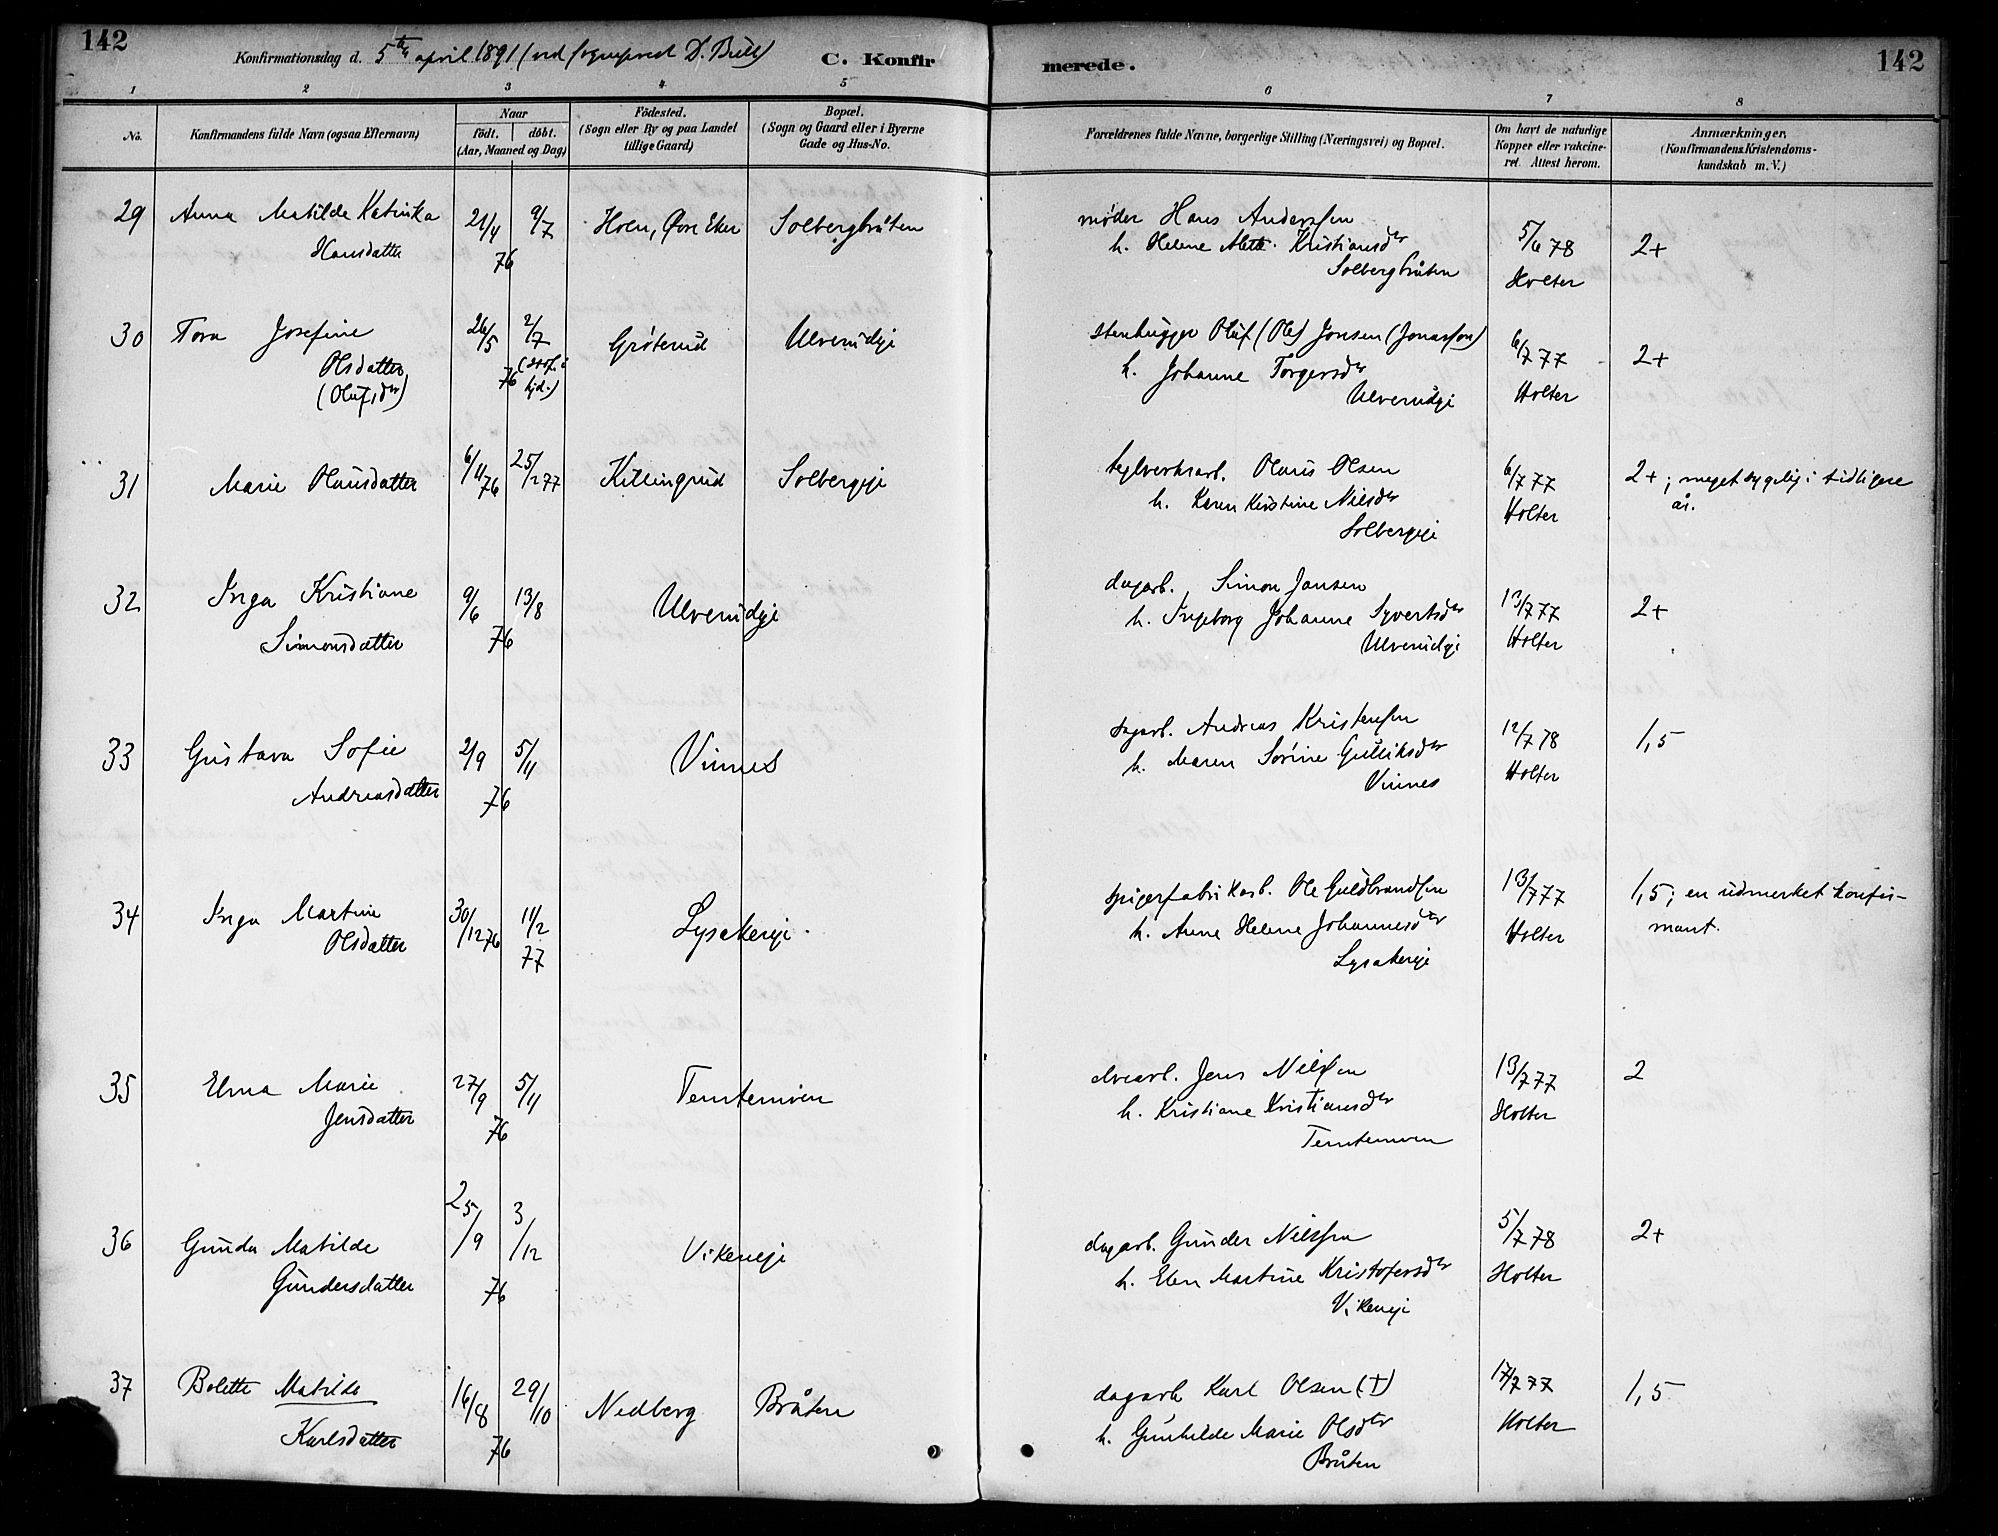 142
Konfirmationsdag d. 5te april 1891 (ved sogneprest D. Bull)
C. Konfir
merede.
142
1 2 3 4 5 6 7 8
No.
Konfirmandens fulde Navn (ogsaa Efternavn)
Naar
födt. döbt.
(Aar, Maaned og Dag)
Födested.
(Sogn eller By og paa Landet
tillige Gaard)
Bopæl.
(Sogn og Gaard eller i Byerne
Gade og Hus-No.
Forældrenes fulde Navne, borgerlige Stilling (Næringsvei) og Bopæl.
Om havt de naturlige
Kopper eller vakcine-
ret. Attest herom.
Anmærkninger.
(Konfirmandens Kristendoms-
kundskab m. V.)
29 Anna Matilde Katinka 21/4 9/7 Horn, Øvre Eker Solbergbråten
Hansdatter 76
møder Hans Anderssen 5/6 78 2+
h. Helene Mette Kristiansdtr
Solbergbråten Holter
30 Tora Josefine 26/5 2/7 Grøterud Ulverudeje
Olsdatter 76
(Olufsdtr)
stenhugger Oluf (Ole) Jonsen (Jonassen) 6/7 77 2+
h. Johanne Torgersdtr Holter
Ulverudeje
31 Marie Olausdatter 6/11 76 25/2 77 Killingrud Solbergeje
teglverksarb. Olaus Olsen 6/7 77 2+; meget sygelig i tidligere
h. Karen Kristine Nilsdtr Holter år.
Solbergeje
32 Inga Kristiane 9/6 13/8 Ulverudeje
Simonsdatter 76
dagarb. Simon Jansen 13/7 77 2+
h. Ingeborg Johanne Syvertsdtr Holter
Ulverudeje
33 Gustava Sofie 2/9 5/11 Vinnes
Andreasdatter 76
dagarb. Andreas Kristensen 12/7 78 1,5
h. Maren Sørine Gulliksdtr Holter
Vinnes
34 Inga Martine 30/12 76 11/2 77 Lysakereje
Olsdatter
spigerfabrikarb. Ole Guldbrandsen 13/7 77 1,5; en udmerket konfir-
h. Anne Helene Johannesdtr Holter mant.
Lysakereje
35 Elma Marie 27/9 5/11
Jensdatter 76
elvearb. Jens Nilssen 13/7 77 2
h. Kristiane Kristiansdtr Holter
36 Gunda Matilde 25/9 3/12 Vikeneje
Gundersdatter 76
dagarb. Gunder Nilssen 5/7 78 2+
h. Elen Martine Kristofersdtr Holter
Vikeneje
37 Bolette Matilde 16/8 29/10 Nedberg Bråten
Karlsdatter 76
dagarb Karl Olsen (†) 17/7 77 1,5
h. Gunhilde Marie Olsdtr Holter
Bråten